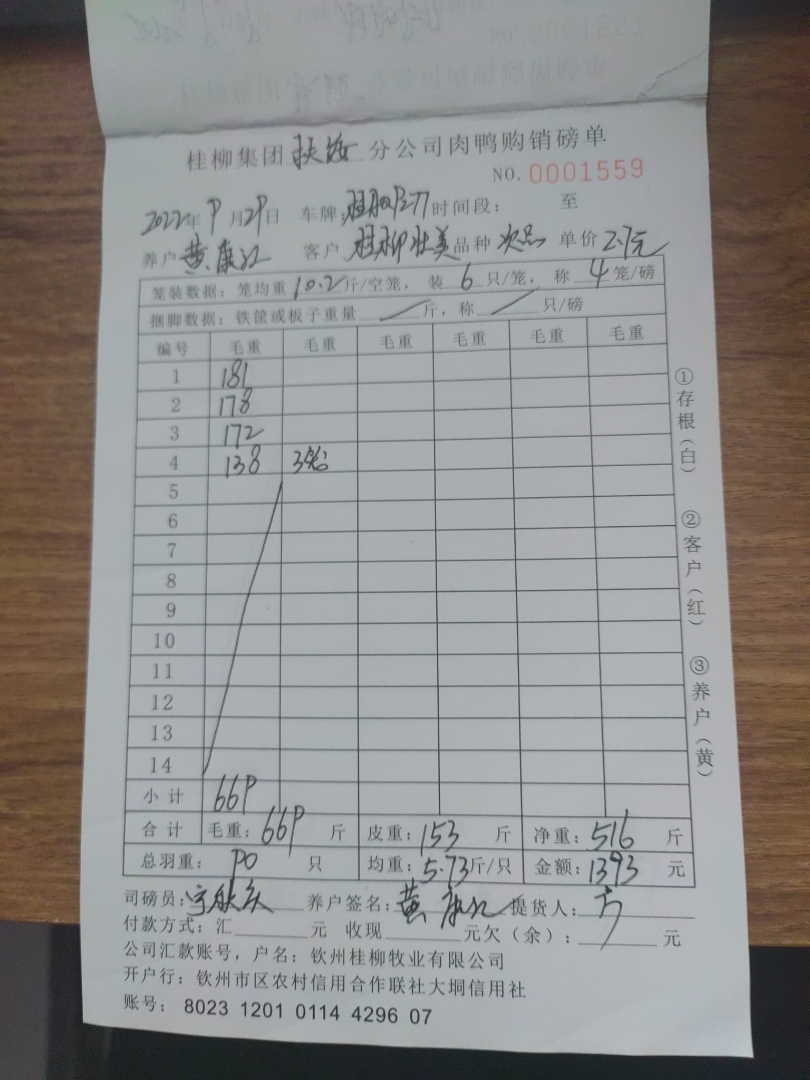 桂柳集团 扶绥 分公司肉鸭购销磅单
NO. 0001559
2022年 9月29日 车牌: 时间段: 至
养户 黄康江 客户 桂柳壮美 品种 次品 单价 2.7元
笼装数据: 笼均重 10.2 斤/空笼, 装 6 只/笼, 称 4 笼/磅
捆脚数据: 铁筐或板子重量 / 斤, 称 / 只/磅
编号 毛重 毛重 毛重 毛重 毛重 毛重
1 181
2 178
3 172
4 138 3笼
5
6
7
8
9
10
11
12
13
14
小计 669
合计 毛重: 669 斤 皮重: 153 斤 净重: 516 斤
总羽重: 90 只 均重: 5.73斤/只 金额: 1393 元
司磅员: 养户签名: 黄康江 提货人: 方
付款方式: 汇 元 收现 元欠(余): / 元
公司汇款账号, 户名: 钦州桂柳牧业有限公司
开户行: 钦州市区农村信用合作联社大垌信用社
账号: 8023 1201 0114 4296 07
①存根(白) ②客户(红) ③养户(黄)